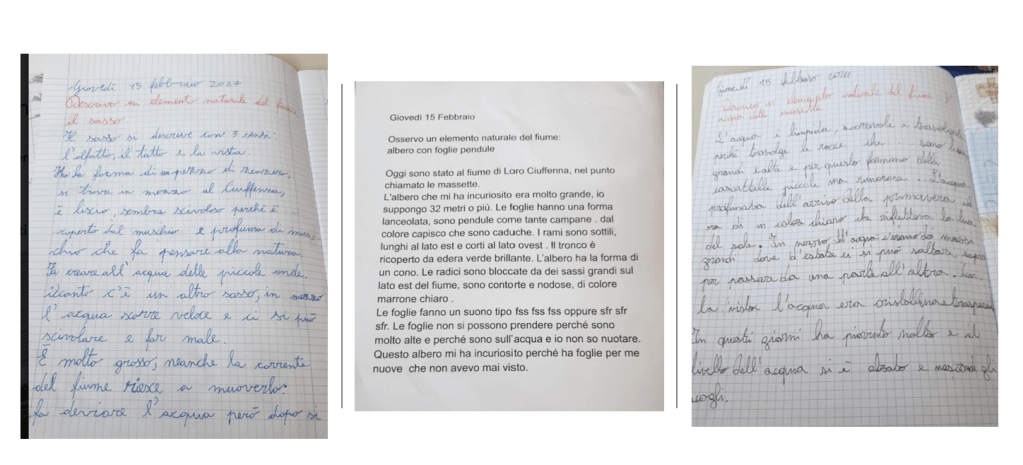 Giovedì 15 febbraio 2024
Osservo un elemento naturale del fiume
il sasso.
Il sasso si descrive con 3 sensi
l'olfatto, il tatto e la vista.
Ha la forma di un pezzo di
si trova in mezzo al Ciuffenna,
è liscio, sembra scivoloso perché è
coperto dal muschio e profuma di mus-
chio che fa pensare alla natura,
fa creare all'acqua delle piccole onde,
accanto c'è un altro sasso, in mezzo
l'acqua scorre veloce e ci si può
scivolare e far male.
È molto grosso, neanche la corrente
del fiume riesce a muoverlo:
fa deviare l'acqua però dopo si
Giovedì 15 Febbraio
Osservo un elemento naturale del fiume:
albero con foglie pendule
Oggi sono stato al fiume di Loro Ciuffenna, nel punto
chiamato le massette.
L'albero che mi ha incuriosito era molto grande, io
suppongo 32 metri o più. Le foglie hanno una forma
lanceolata, sono pendule come tante campane . dal
colore capisco che sono caduche. I rami sono sottili,
lunghi al lato est e corti al lato ovest . Il tronco è
ricoperto da edera verde brillante. L'albero ha la forma di
un cono. Le radici sono bloccate da dei sassi grandi sul
lato est del fiume, sono contorte e nodose, di colore
marrone chiaro .
Le foglie fanno un suono tipo fss fss fss oppure sfr sfr
sfr. Le foglie non si possono prendere perché sono
molto alte e perché sono sull'acqua e io non so nuotare.
Questo albero mi ha incuriosito perché ha foglie per me
nuove che non avevo mai visto.
Giovedì 15 febbraio 2024
Osservo un elemento naturale del fiume
acqua alle massette
L'acqua è limpida, scorrevole e travolgente
perché travolge le rocce che sono
grandi e alte e per questo formano delle
cascatelle piccole ma rumorose. L'acqua
profumava dell'arrivo della primavera ed
era di un colore chiaro che rifletteva la luce
del sole. In mezzo all'acqua c'erano dei massi
grandi dove d'estate ci si può saltare sopra
per passare da una parte all'altra.
la vista l'acqua era
In questi giorni ha piovuto molto e il
livello dell'acqua si è alzato e gli
scogli.